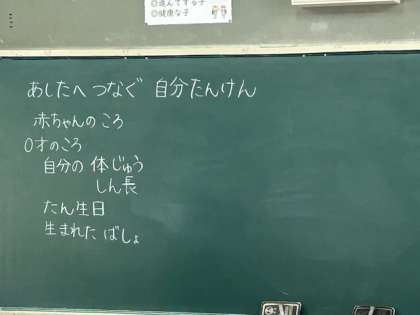 ◎進んでする子
◎健康な子
あしたへつなぐ 自分たんけん
赤ちゃんのころ
0才のころ
自分の 体じゅう
しん長
たん生日
生まれた ばしょ